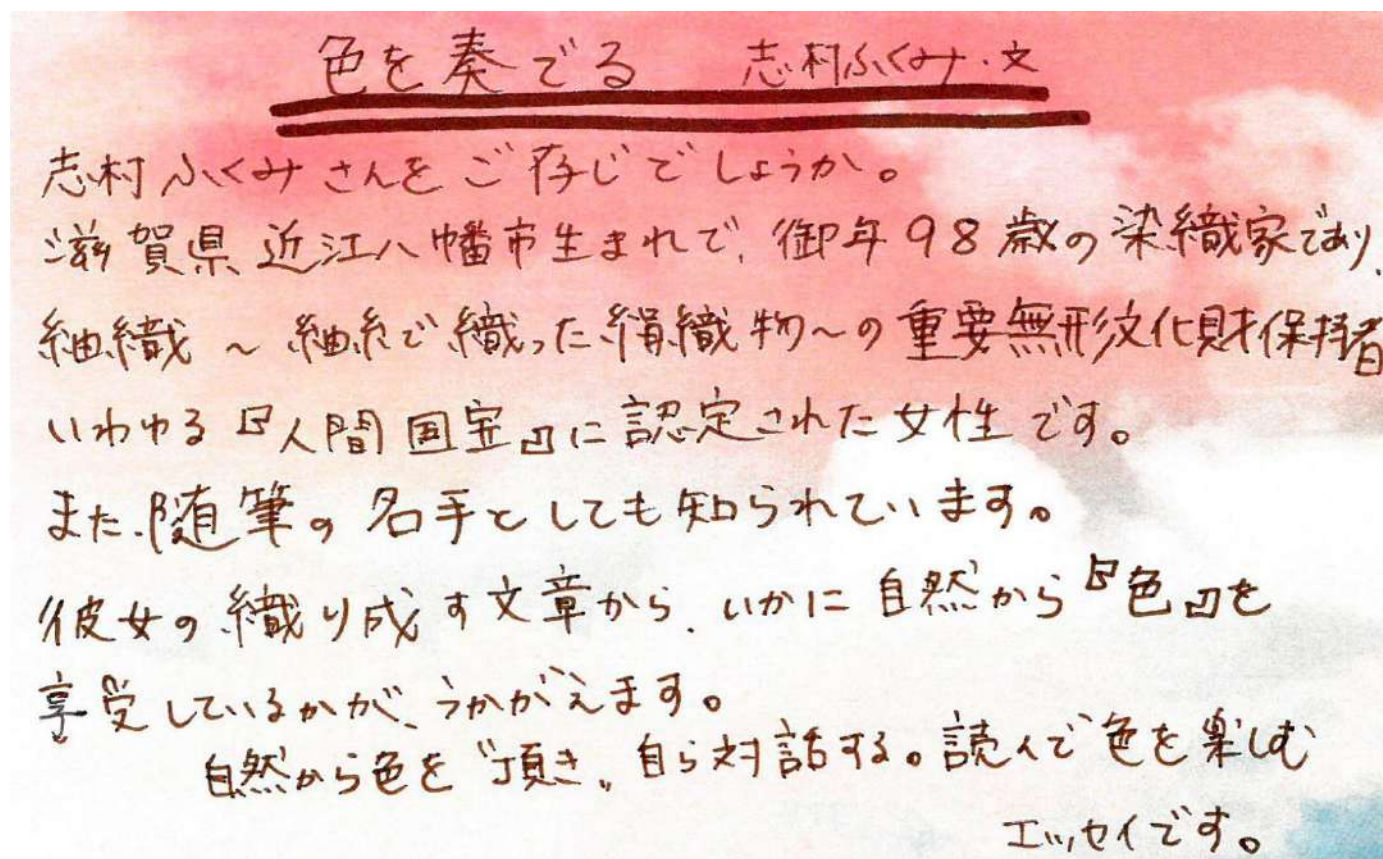 色を奏でる 志村ふくみ・文
志村ふくみさんをご存じでしょうか。
滋賀県近江八幡市生まれで、御年98歳の染織家であり、
紬織～紬糸で織った絹織物～の重要無形文化財保持者
いわゆる『人間国宝』に認定された女性です。
また、随筆の名手としても知られています。
彼女の織り成す文章から、いかに自然から『色』を
享受しているかが、うかがえます。
自然から色を〝頂き〟自ら対話する。読んで色を楽しむ
エッセイです。